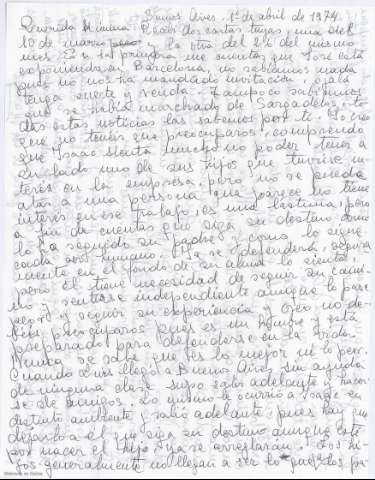 Buenos Aires. 1º de abril de 1974
Querida Mimina: Recibí dos cartas tuyas, una del
10 de marzo y la otra del 24 del mismo
mes. En la primera me cuentas que José está
exponiendo en Barcelona, no sabíamos nada
pues no nos ha mandado invitación, ojalá
tenga suerte y venda. Tampoco sabíamos
que se había marchado de Sargadelos, to-
das estas noticias las sabemos por ti. Yo creo
que no tenéis que preocuparos, comprendo
que Isaac sienta mucho no poder tener a
su lado uno de sus hijos que tuviese in-
terés en la empresa, pero no se puede
atar a una persona que parece no tiene
interés en ese trabajo, es una lástima, pero
a fin de cuentas que siga su destino como
lo ha seguido su padre y como lo sigue
cada ser humano. Ya se defenderá, segura-
mente en el fondo de su alma lo siente,
pero él tiene necesidad de seguir su cami-
no y sentirse independiente aunque lo pase
peor, y seguir su experiencia y creo no de-
béis preocuparos pues es un hombre y está
preparado para defenderse en la vida.
Nunca se sabe que es lo mejor ni lo peor.
Cuando Luis llegó a Buenos Aires, sin ayuda
de ninguna clase supo salir adelante y hacer-
se de amigos. Lo mismo le ocurrió a Isaac en
distinto ambiente y salió adelante, pues hay que
dejarlo a él que siga su destino aunque esté
por nacer el hijo, ya se arreglarán. Los hi-
jos generalmente no llegan a ser lo que los pa-